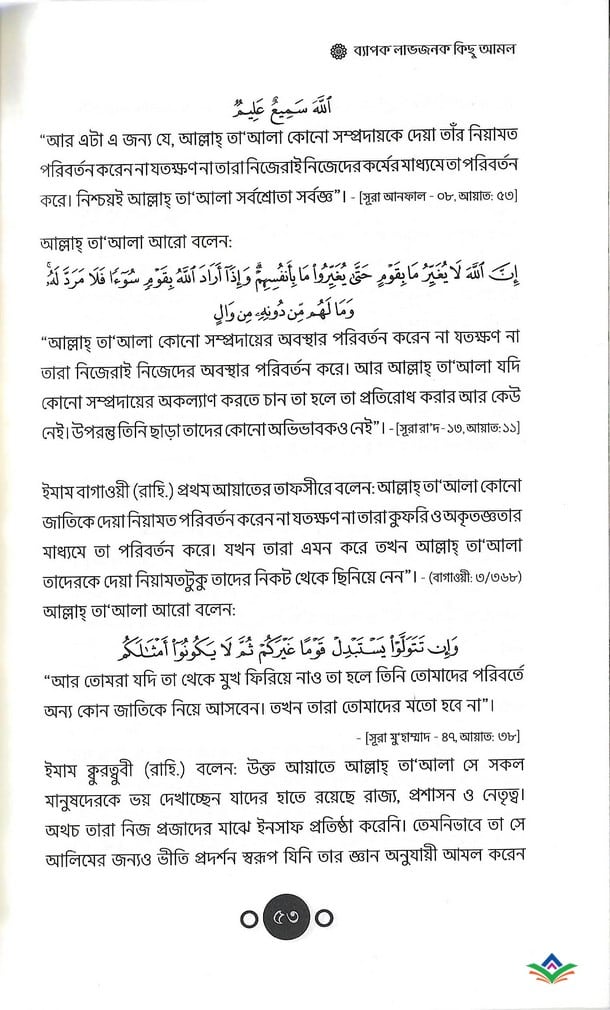 ব্যাপক লাভজনক কিছু আমল
ٱللَّهَ سَمِيعٌ عَلِيمٌ
“আর এটা এ জন্য যে, আল্লাহ্ তা‘আলা কোনো সম্প্রদায়কে দেয়া তাঁর নিয়ামত
পরিবর্তন করেন না যতক্ষণ না তারা নিজেরাই নিজেদের কর্মের মাধ্যমে তা পরিবর্তন
করে। নিশ্চয়ই আল্লাহ্ তা‘আলা সর্বশ্রোতা সর্বজ্ঞ”। - [সূরা আনফাল - ০৮, আয়াত: ৫৩]
আল্লাহ্ তা‘আলা আরো বলেন:
إِنَّ ٱللَّهَ لَا يُغَيِّرُ مَا بِقَوْمٍ حَتَّىٰ يُغَيِّرُوا۟ مَا بِأَنفُسِهِمْ ۗ وَإِذَآ أَرَادَ ٱللَّهُ بِقَوْمٍ سُوٓءًا فَلَا مَرَدَّ لَهُۥ ۚ
وَمَا لَهُم مِّن دُونِهِۦ مِن وَالٍ
“আল্লাহ্ তা‘আলা কোনো সম্প্রদায়ের অবস্থার পরিবর্তন করেন না যতক্ষণ না
তারা নিজেরাই নিজেদের অবস্থার পরিবর্তন করে। আর আল্লাহ্ তা‘আলা যদি
কোনো সম্প্রদায়ের অকল্যাণ করতে চান তা হলে তা প্রতিরোধ করার আর কেউ
নেই। উপরন্তু তিনি ছাড়া তাদের কোনো অভিভাবকও নেই”। - [সূরা রা’দ - ১৩, আয়াত: ১১]
ইমাম বাগাওয়ী (রাহি.) প্রথম আয়াতের তাফসীরে বলেন: আল্লাহ্ তা‘আলা কোনো
জাতিকে দেয়া নিয়ামত পরিবর্তন করেন না যতক্ষণ না তারা কুফরি ও অকৃতজ্ঞতার
মাধ্যমে তা পরিবর্তন করে। যখন তারা এমন করে তখন আল্লাহ্ তা‘আলা
তাদেরকে দেয়া নিয়ামতটুকু তাদের নিকট থেকে ছিনিয়ে নেন”। - (বাগাওয়ী: ৩/৩৬৮)
আল্লাহ্ তা‘আলা আরো বলেন:
وَإِن تَتَوَلَّوْا۟ يَسْتَبْدِلْ قَوْمًا غَيْرَكُمْ ثُمَّ لَا يَكُونُوٓا۟ أَمْثَـٰلَكُم
“আর তোমরা যদি তা থেকে মুখ ফিরিয়ে নাও তা হলে তিনি তোমাদের পরিবর্তে
অন্য কোন জাতিকে নিয়ে আসবেন। তখন তারা তোমাদের মতো হবে না”।
- [সূরা মু’হাম্মাদ - ৪৭, আয়াত: ৩৮]
ইমাম ক্বুরত্বুবী (রাহি.) বলেন: উক্ত আয়াতে আল্লাহ্ তা‘আলা সে সকল
মানুষদেরকে ভয় দেখাচ্ছেন যাদের হাতে রয়েছে রাজ্য, প্রশাসন ও নেতৃত্ব।
অথচ তারা নিজ প্রজাদের মাঝে ইনসাফ প্রতিষ্ঠা করেনি। তেমনিভাবে তা সে
আলিমের জন্যও ভীতি প্রদর্শন স্বরূপ যিনি তার জ্ঞান অনুযায়ী আমল করেন
৫৩